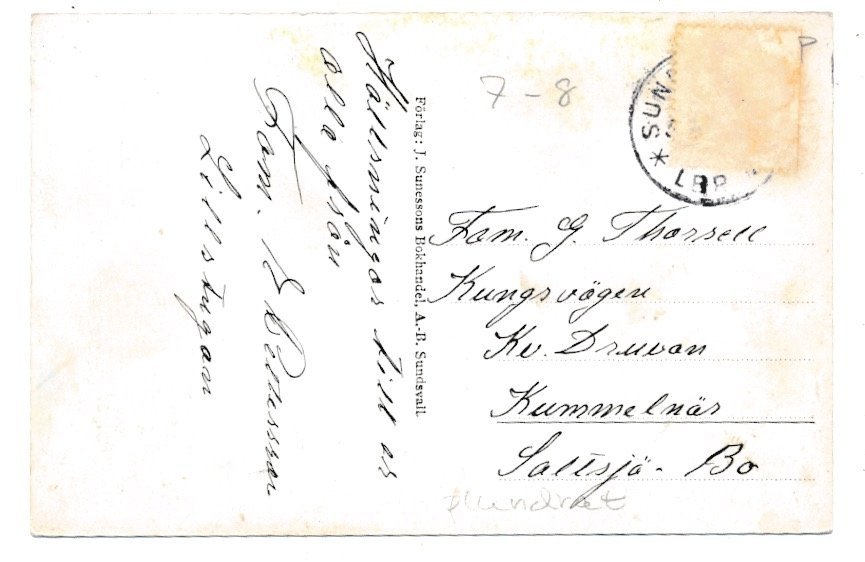 Hälsningar till er
alla från
Fam. E Pettersson
Lillstugan
Förlag: J. Sunessons Bokhandel, A.-B. Sundsvall.
7-8
SUN
LBP
P
Fam. G. Thorsell
Kungsvägen
Kv. Druvan
Kummelnäs
Saltsjö-Bo